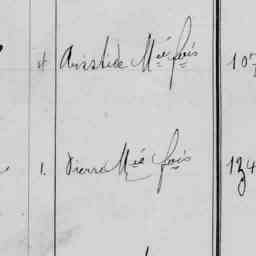 Aristide Mié fois 107
1. Pierre Mié fois 134